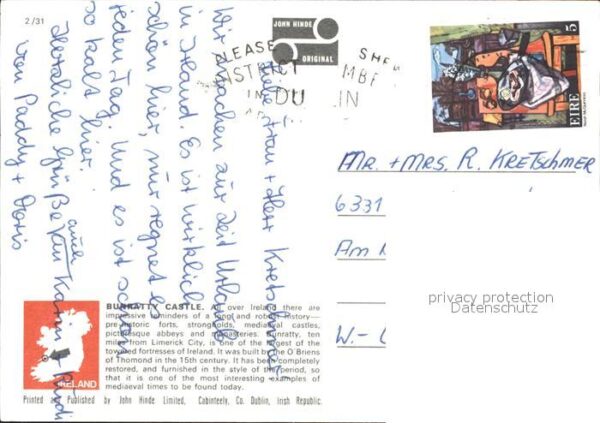 2/31
JOHN HINDE
ORIGINAL
PLEASE
DISTRICT
IN DUBLIN
5
EIRE
Liebe Frau + Herr Kretschmer.
Wir machen zur Zeit Urlaub
in Irland. Es ist wirklich
schön hier, nur regnet es
jeden Tag. Und es ist
so kalt hier.
Herzliche Grüße auch an Karin + Rudi
von Paddy + Doris
MR. + MRS. R. KRETSCHMER
6331
AM
W.-
privacy protection
Datenschutz
IRELAND
BUNRATTY CASTLE. All over Ireland there are
impressive reminders of a long and robust history—
prehistoric forts, strongholds, mediaeval castles,
picturesque abbeys and monasteries. Bunratty, ten
miles from Limerick City, is one of the largest of the
towered fortresses of Ireland. It was built by the O'Briens
of Thomond in the 15th century. It has been completely
restored, and furnished in the style of the period, so
that it is one of the most interesting examples of
mediaeval times to be found today.
Printed and Published by John Hinde Limited, Cabinteely, Co. Dublin, Irish Republic.